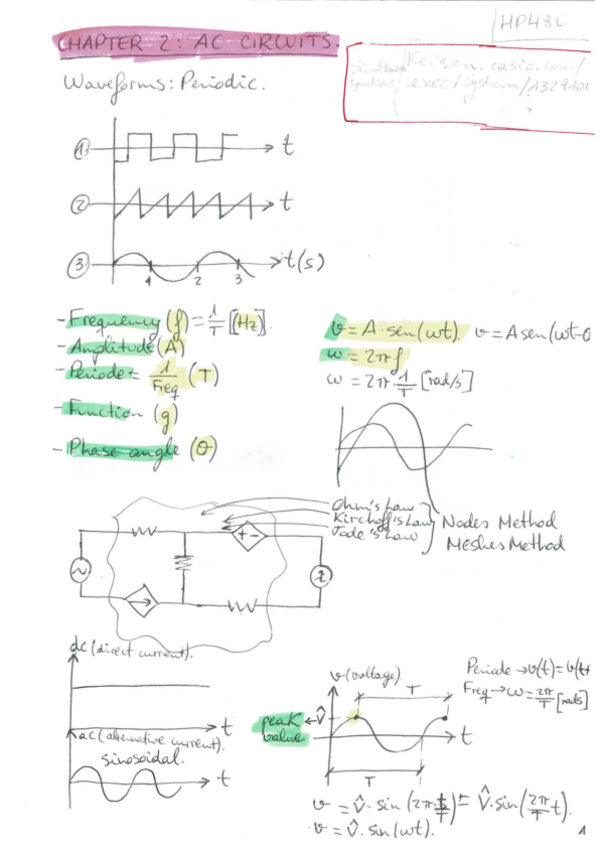 HP48C
CHAPTER 2: AC CIRCUITS.
Keisan.casio.com/
exec/system/
Waveforms: Periodic.
1 t
2 t
3 t(s)
1 2 3
- Frequency (f) = 1/T [(Hz)].
- Amplitude (A)
- Periode = 1/Freq (T)
- Function (g)
- Phase angle (θ)
v = A·sen(ωt). v = A sen(ωt-θ
ω = 2πf
ω = 2π 1/T [rad/s]
Ohm's Law
Kirchoff's Law
Nodes Method
Meshes Method
+ -
dc (direct current).
t
ac (alternative current).
sinosoidal.
t
v (voltage)
T
peak value
V̂
t
T
Periode → v(t) = v(t+
Freq → ω = 2π/T [rad/s]
v = V̂·sin(2π·t/T) = V̂·sin(2π/T t).
v = V̂·sin(ωt).
1